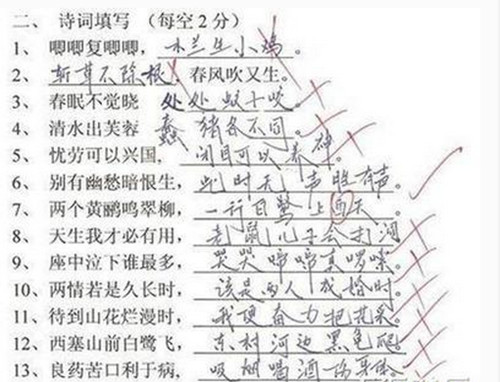 二、诗词填写 （每空2分）
1、唧唧复唧唧，木兰生小鸡。
2、斩草不除根，春风吹又生。
3、春眠不觉晓 处处蚊子咬。
4、清水出芙蓉 蠢猪各不同。
5、忧劳可以兴国，闭目可以养神。
6、别有幽愁暗恨生，此时无声胜有声。
7、两个黄鹂鸣翠柳，一行白鹭上西天。
8、天生我才必有用，老鼠儿子会打洞
9、座中泣下谁最多，哭哭啼啼真啰嗦。
10、两情若是久长时，该是两人成婚时。
11、待到山花烂漫时，我便奋力把花采。
12、西塞山前白鹭飞，东村河边黑龟爬
13、良药苦口利于病，吸烟喝酒伤身体